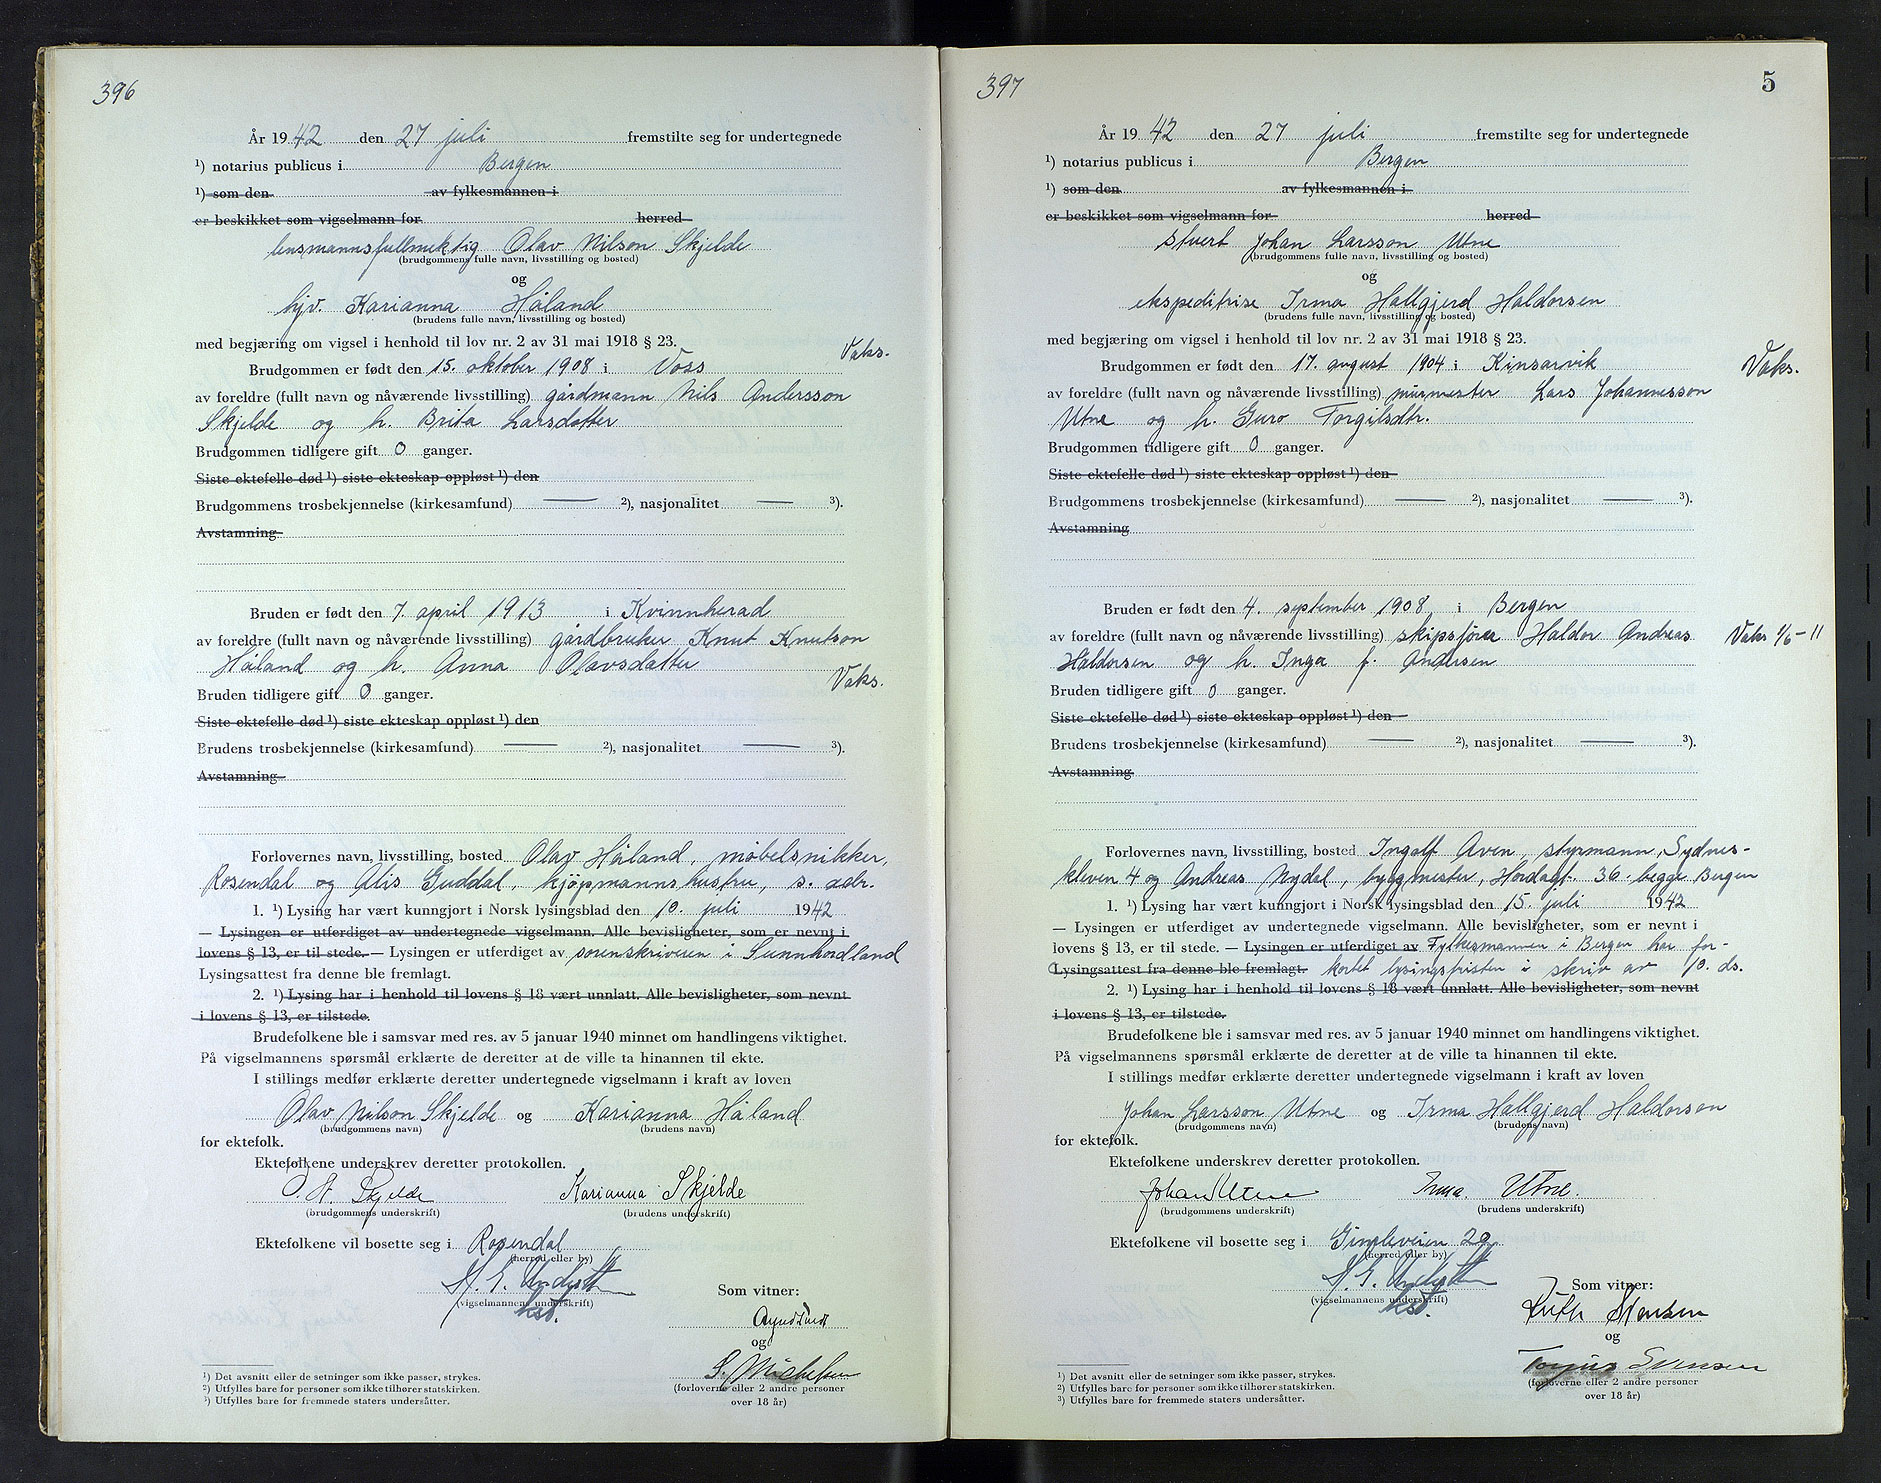 396
År 1942 den 27 juli fremstilte seg for undertegnede
¹) notarius publicus i Bergen
¹) som den av fylkesmannen i
er beskikket som vigselmann for herred
lensmannsfullmektig Olav Nilson Skjelde
(brudgommens fulle navn, livsstilling og bosted)
og
hjv. Karianna Håland
(brudens fulle navn, livsstilling og bosted)
med begjæring om vigsel i henhold til lov nr. 2 av 31 mai 1918 § 23.
Vaks.
Brudgommen er født den 15. oktober 1908 i Voss
av foreldre (fullt navn og nåværende livsstilling) gårdmann Nils Andersson
Skjelde og h. Brita Larsdatter
Brudgommen tidligere gift 0 ganger.
Siste ektefelle død ¹) siste ekteskap oppløst ¹) den
Brudgommens trosbekjennelse (kirkesamfund) — ²), nasjonalitet — ³).
Avstamning
Bruden er født den 7. april 1913 i Kvinnherad
av foreldre (fullt navn og nåværende livsstilling) gårdbruker Knut Knutson
Håland og h. Anna Olavsdatter
Vaks.
Bruden tidligere gift 0 ganger.
Siste ektefelle død ¹) siste ekteskap oppløst ¹) den
Brudens trosbekjennelse (kirkesamfund) — ²), nasjonalitet — ³).
Avstamning
Forlovernes navn, livsstilling, bosted Olav Håland, møbelsnikker,
Rosendal og Alis Guddal, kjøpmannshustru, s. adr.
1. ¹) Lysing har vært kunngjort i Norsk lysingsblad den 10. juli 1942
— Lysingen er utferdiget av undertegnede vigselmann. Alle bevisligheter, som er nevnt i
lovens § 13, er til stede. — Lysingen er utferdiget av sorenskriveren i Sunnhordland
Lysingsattest fra denne ble fremlagt.
2. ¹) Lysing har i henhold til lovens § 18 vært unnlatt. Alle bevisligheter, som nevnt
i lovens § 13, er tilstede.
Brudefolkene ble i samsvar med res. av 5 januar 1940 minnet om handlingens viktighet.
På vigselmannens spørsmål erklærte de deretter at de ville ta hinannen til ekte.
I stillings medfør erklærte deretter undertegnede vigselmann i kraft av loven
Olav Nilson Skjelde og Karianna Håland
(brudgommens navn) (brudens navn)
for ektefolk.
Ektefolkene underskrev deretter protokollen.
O. N. Skjelde Karianna Skjelde
(brudgommens underskrift) (brudens underskrift)
Ektefolkene vil bosette seg i Rosendal
(herred eller by)
(vigselmannens underskrift)
kst.
Som vitner:
og
S. Michelsen
(forloverne eller 2 andre personer
over 18 år)
¹) Det avsnitt eller de setninger som ikke passer, strykes.
²) Utfylles bare for personer som ikke tilhører statskirken.
³) Utfylles bare for fremmede staters undersåtter.
397
5
År 1942 den 27 juli fremstilte seg for undertegnede
¹) notarius publicus i Bergen
¹) som den av fylkesmannen i
er beskikket som vigselmann for herred
stuert Johan Larsson Utne
(brudgommens fulle navn, livsstilling og bosted)
og
ekspeditrise Irma Hallgjerd Haldorsen
(brudens fulle navn, livsstilling og bosted)
med begjæring om vigsel i henhold til lov nr. 2 av 31 mai 1918 § 23.
Brudgommen er født den 17. august 1904 i Kinsarvik
Vaks.
av foreldre (fullt navn og nåværende livsstilling) murmester Lars Johannesson
Utne og h. Guro Torgilsdtr.
Brudgommen tidligere gift 0 ganger.
Siste ektefelle død ¹) siste ekteskap oppløst ¹) den
Brudgommens trosbekjennelse (kirkesamfund) — ²), nasjonalitet — ³).
Avstamning
Bruden er født den 4. september 1908 i Bergen
av foreldre (fullt navn og nåværende livsstilling) skipsfører Haldor Andreas
Vaks 1/6-11
Haldorsen og h. Inga f. Andersen
Bruden tidligere gift 0 ganger.
Siste ektefelle død ¹) siste ekteskap oppløst ¹) den
Brudens trosbekjennelse (kirkesamfund) — ²), nasjonalitet — ³).
Avstamning
Forlovernes navn, livsstilling, bosted Ingolf Aven, styrmann, Sydnes-
kleven 4 og Andreas Nydal, byggmester, Hordagt. 36. begge Bergen
1. ¹) Lysing har vært kunngjort i Norsk lysingsblad den 15. juli 1942
— Lysingen er utferdiget av undertegnede vigselmann. Alle bevisligheter, som er nevnt i
lovens § 13, er til stede. — Lysingen er utferdiget av Fylkesmannen i Bergen har for-
Lysingsattest fra denne ble fremlagt. kortet lysingsfristen i skriv av 10. ds.
2. ¹) Lysing har i henhold til lovens § 18 vært unnlatt. Alle bevisligheter, som nevnt
i lovens § 13, er tilstede.
Brudefolkene ble i samsvar med res. av 5 januar 1940 minnet om handlingens viktighet.
På vigselmannens spørsmål erklærte de deretter at de ville ta hinannen til ekte.
I stillings medfør erklærte deretter undertegnede vigselmann i kraft av loven
Johan Larsson Utne og Irma Hallgjerd Haldorson
(brudgommens navn) (brudens navn)
for ektefolk.
Ektefolkene underskrev deretter protokollen.
Johan Utne Irma Utne.
(brudgommens underskrift) (brudens underskrift)
Ektefolkene vil bosette seg i Gimleveien 29
(herred eller by)
(vigselmannens underskrift)
kst.
Som vitner:
Ruth
og
Svensen
(forloverne eller 2 andre personer
over 18 år)
¹) Det avsnitt eller de setninger som ikke passer, strykes.
²) Utfylles bare for personer som ikke tilhører statskirken.
³) Utfylles bare for fremmede staters undersåtter.